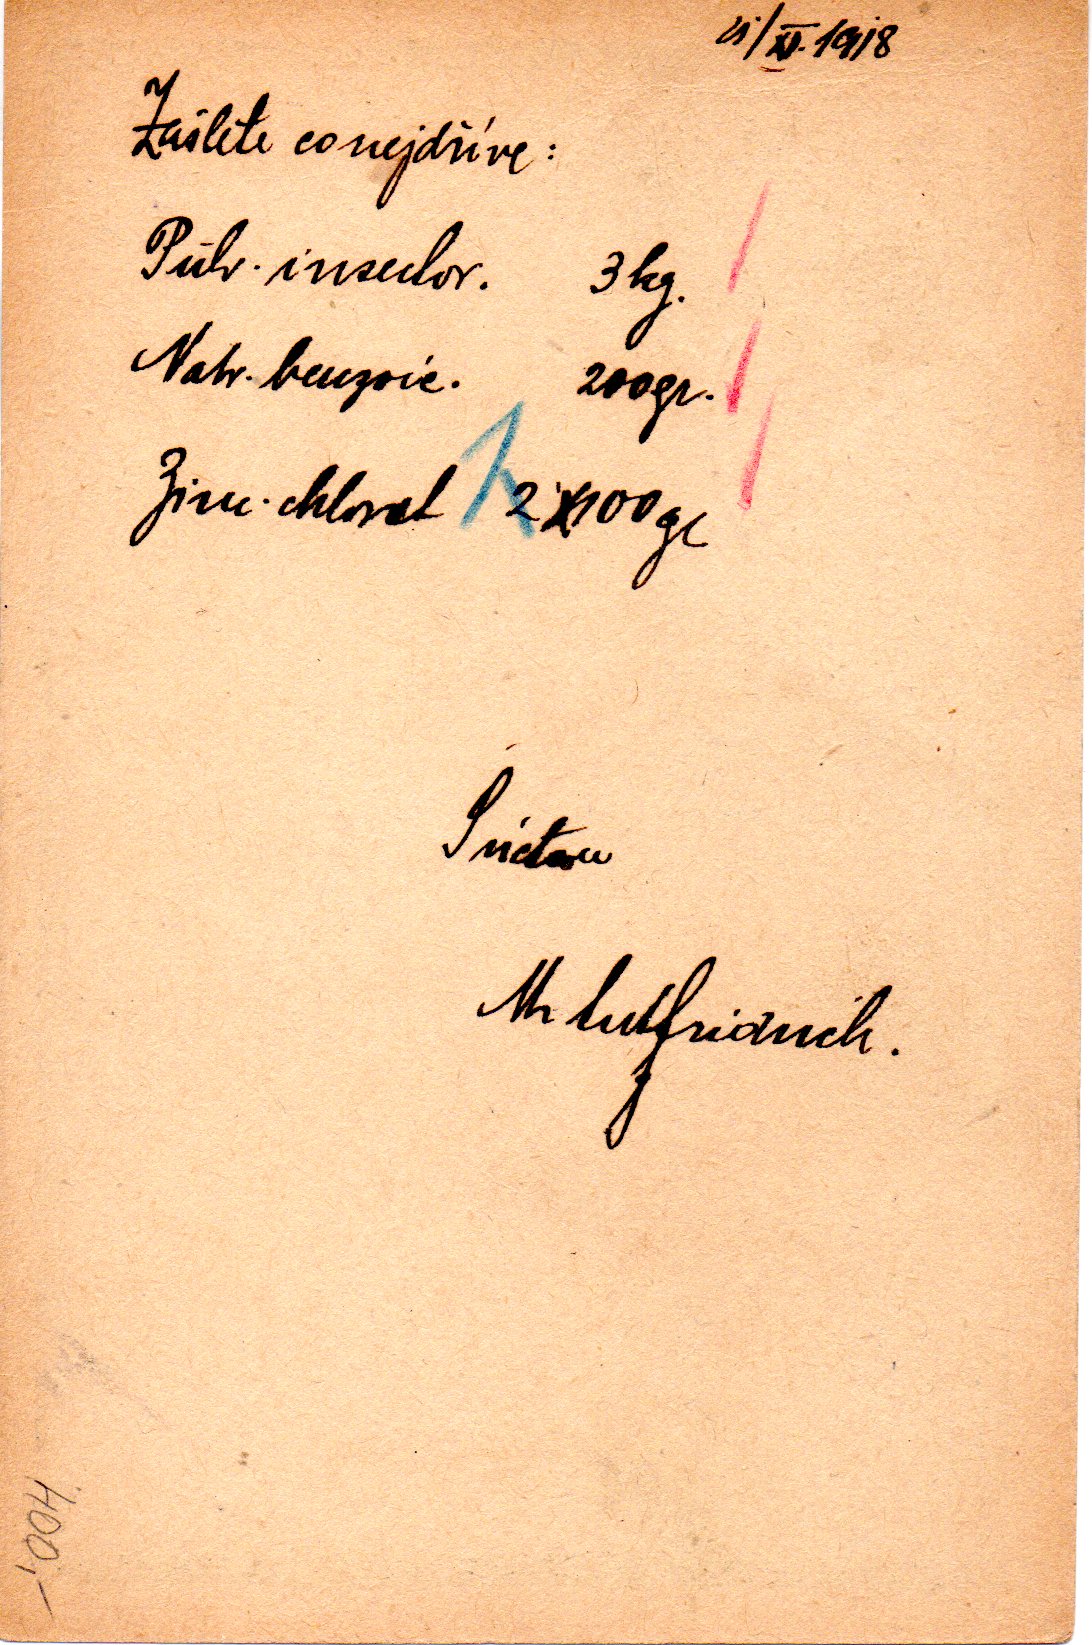 XI. 1918
Zašlete co nejdříve:
Pulv. insector. 3 kg.
Natr. benzoic. 200 gr.
Zinc. chlorat 2 x 100 gr
S úctou
Mr
400.-